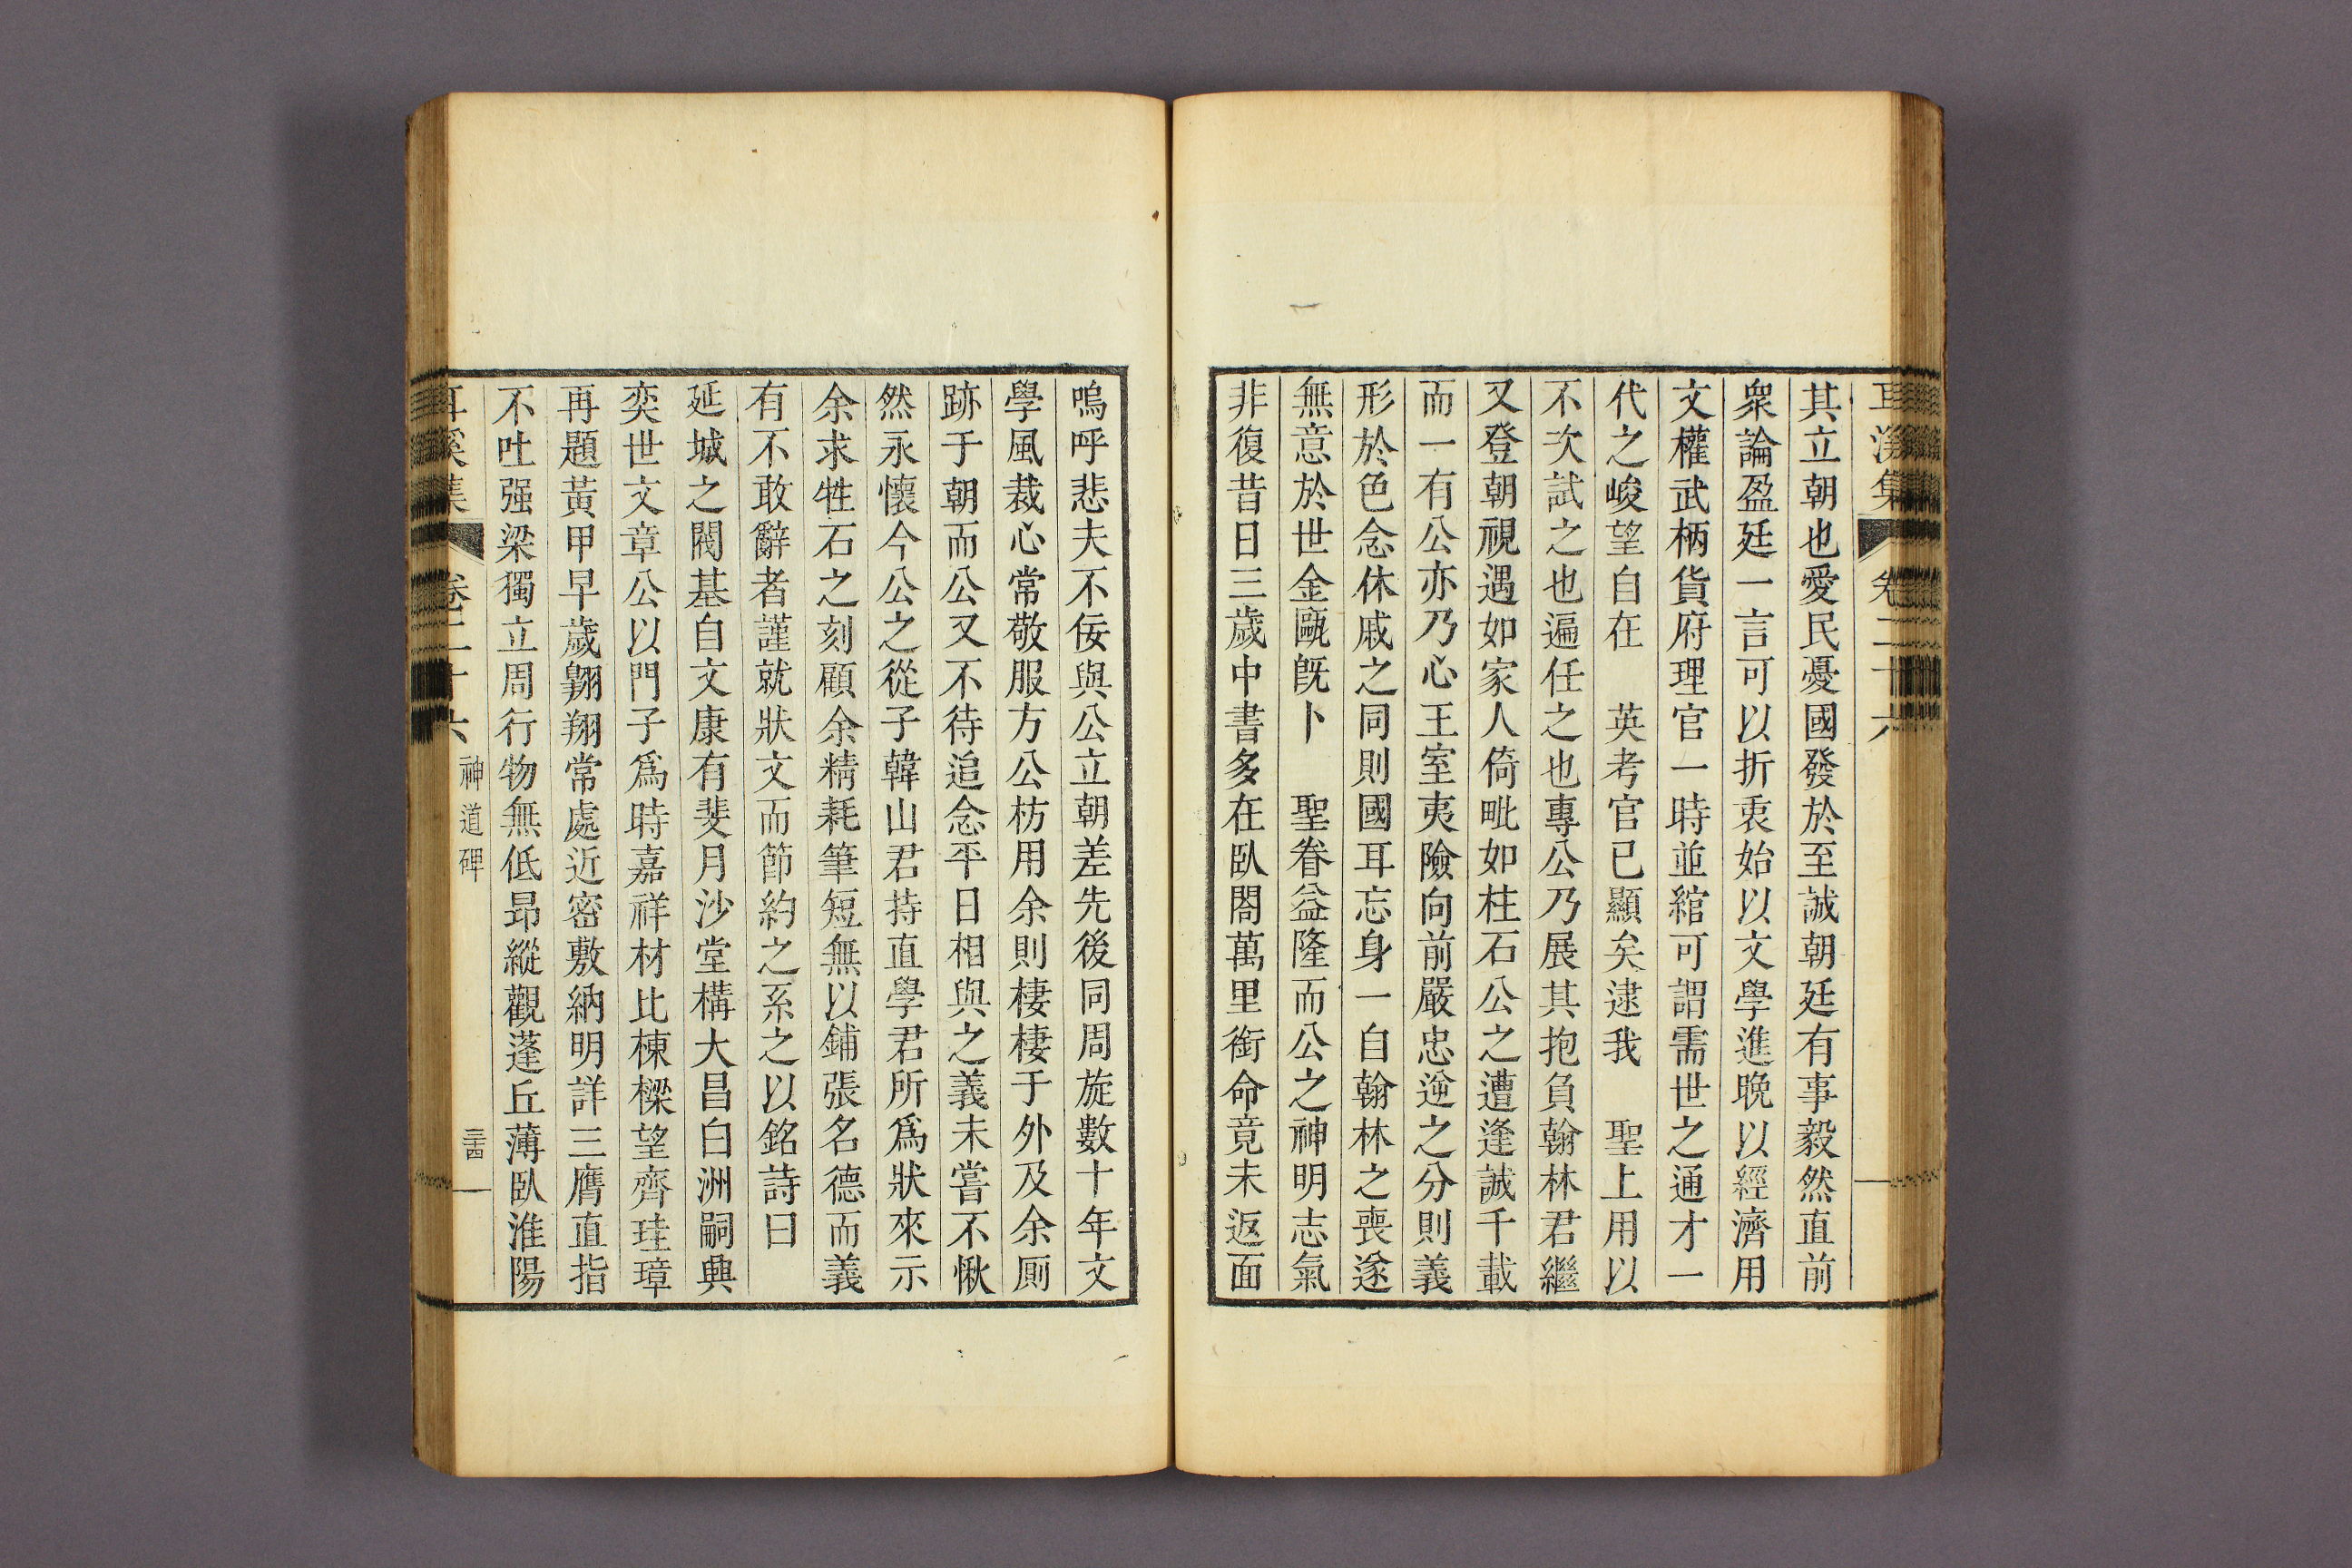 耳溪集 卷二十六
其立朝也愛民憂國發於至誠朝廷有事毅然直前
衆論盈廷一言可以折衷始以文學進晩以經濟用
文權武柄貨府理官一時並綰可謂需世之通才一
代之峻望自在 英考官已顯矣逮我 聖上用以
不次試之也遍任之也專公乃展其抱負翰林君繼
又登朝視遇如家人倚毗如柱石公之遭逢誠千載
而一有公亦乃心王室夷險向前嚴忠逆之分則義
形於色念休戚之同則國耳忘身一自翰林之喪遂
無意於世金甌旣卜 聖眷益隆而公之神明志氣
非復昔日三歲中書多在臥閤萬里銜命竟未返面
嗚呼悲夫不佞與公立朝差先後同周旋數十年文
學風裁心常敬服方公枋用余則棲棲于外及余厠
跡于朝而公又不待追念平日相與之義未嘗不愀
然永懷今公之從子韓山君持直學君所爲狀來示
余求牲石之刻顧余精耗筆短無以鋪張名德而義
有不敢辭者謹就狀文而節約之系之以銘詩曰
延城之閥基自文康有斐月沙堂構大昌白洲嗣興
奕世文章公以門子爲時嘉祥材比棟樑望齊珪璋
再題黃甲早歲翺翔常處近密敷納明詳三膺直指
不吐强梁獨立周行物無低昂縱觀蓬丘薄臥淮陽
耳溪集 卷二十六 神道碑 三十四